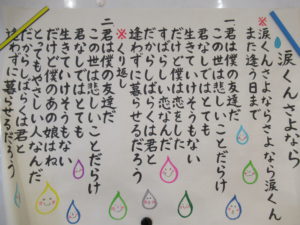 涙くんさよなら
※涙くんさよならさよなら涙くん
また逢う日まで
一君は僕の友達だ
この世は悲しいことだらけ
君なしではとても
生きていけそうもない
だけど僕は恋をした
すばらしい恋なんだ
だからしばらくは君と
逢わずに暮らせるだろう
※くり返し
二君は僕の友達だ
この世は悲しいことだらけ
君なしではとても
生きていけそうもない
だけど僕のあの娘はね
とってもやさしい人なんだ
だからしばらくは君と
逢わずに暮らせるだろう